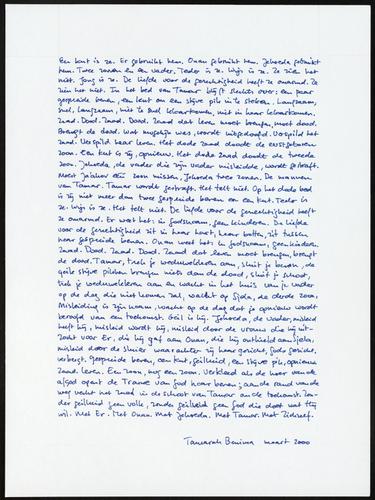 Een kont is ze. Er gebruikt hem. Onan gebruikt hem. Jehoeda gebruikt
hem. Twee zonen en een vader. Teder is ze. Wijs is ze. Ze zien het
niet. Jong is ze. De liefde voor de gerechtigheid heeft ze omarmd. Ze
zien het niet. In het bed van Tamar blijft slechts over: een paar
gespreide benen, een kut om een stijve pik in te steken. Langzaam,
snel, langzaam, niet te snel klaarkomen, niet in haar klaarkomen.
zaad. Dood. Zaad. Dood. Zaad dat leven moet brengen, moet dood.
Brengt de dood. Wat mogelijk was, wordt uitgedoofd. Verspild het
zaad. Verspild haar leven. Het dode zaad doodt de eerstgeboren
zoon. Een kut is zij, opnieuw. Het dode zaad doodt de tweede
zoon. Jehoeda, de vader die zijn vader misleidde, wordt gestraft.
Moest Jacob één zoon missen, Jehoeda twee zonen. De mannen
van Tamar. Tamar wordt gestraft. Het telt niet. Op het dode bed
is zij niet meer dan twee gespreide benen en een kut. Teder is
ze. Wijs is ze. Het telt niet. De liefde voor de gerechtigheid heeft
ze omarmd. Er weet het: in godsnaam, geen kinderen. De liefde
voor de gerechtigheid zit in haar hart, haar botten, zit tussen
haar gespreide benen. Onan weet het: in godsnaam, geen kinderen.
Zaad. Dood. Zaad. Dood. Zaad dat leven moet brengen, brengt
de dood. Tamar, trek je weduwekleren aan, sluit je benen, de
geile stijve pikken brengen niets dan de dood, sluit je schoot,
trek je weduwekleren aan en wacht in het huis van je vader
op de dag die niet komen zal, wacht op Sjela, de derde zoon.
Misleiding is zijn naam, wacht op de dag dat je opnieuw wordt
beroofd van een toekomst. Geil is hij. Jehoeda, de vader, misleid
heeft hij, misleid wordt hij, misleid door de vrouw die hij uit-
zocht voor Er, die hij gaf aan Onan, die hij onthield aan Sjela,
misleid door de sluier waarachter zij haar gezicht, Gods gezicht,
verbergt. Gespreide benen, een kut, geilheid, een stijve pik, opnieuw
zaad. Leven. Een zoon, nog een zoon. Verkleed als de hoer van de
afgod opent de Vrouw van God haar benen; aan de rand van de
weg vecht het zaad in de schoot van Tamar om de toekomst. Zon-
der geilheid geen volk, zonder geilheid geen God die doet wat Hij
wil. Met Er. Met Onan. Met Jehoeda. Met Tamar. Met Zichzelf.
Tamarah Benima maart 2000